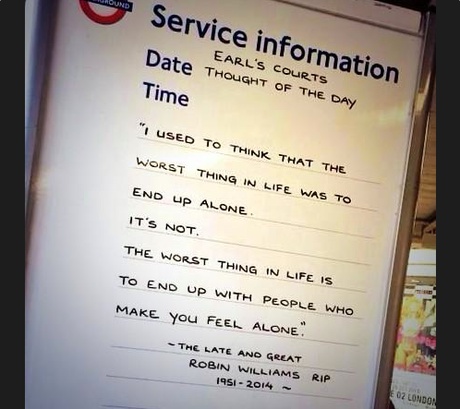 GROUND
Service information
Date EARL'S COURTS
THOUGHT OF THE DAY
Time
"I USED TO THINK THAT THE
WORST THING IN LIFE WAS TO
END UP ALONE.
IT'S NOT.
THE WORST THING IN LIFE IS
TO END UP WITH PEOPLE WHO
MAKE YOU FEEL ALONE."
~ THE LATE AND GREAT
ROBIN WILLIAMS RIP
1951-2014 ~
E O2 LONDON